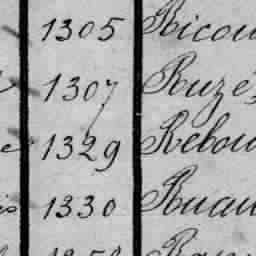 1305 Ricou
1307 Ruzé
1329 Rebou
1330 Ruau